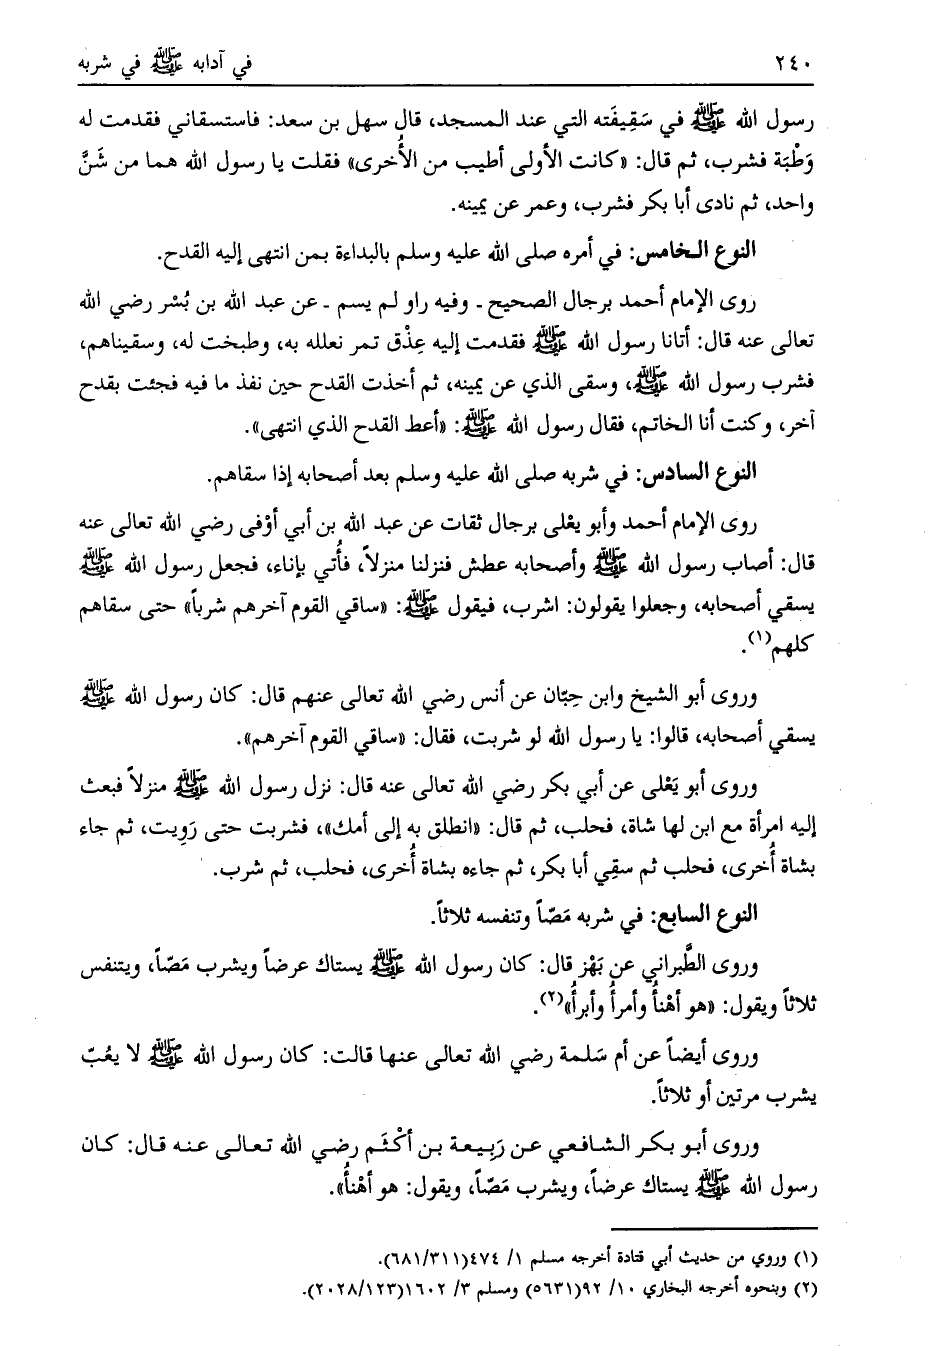 ٢٤٠ في آدابه ﷺ في شربه
رسول الله ﷺ في سَقِيفَته التي عند المسجد، قال سهل بن سعد: فاستسقاني فقدمت له
وَطْبَة فشرب، ثم قال: «كانت الأولى أطيب من الأُخرى» فقلت يا رسول الله هما من شَنَّ
واحد، ثم نادى أبا بكر فشرب، وعمر عن يمينه.
النوع الخامس: في أمره صلى الله عليه وسلم بالبداءة بمن انتهى إليه القدح.
روى الإمام أحمد برجال الصحيح ـ وفيه راو لم يسم ـ عن عبد الله بن بُسْر رضي الله
تعالى عنه قال: أتانا رسول الله ﷺ فقدمت إليه عِذْق تمر نعلله به، وطبخت له، وسقيناهم،
فشرب رسول الله ﷺ، وسقى الذي عن يمينه، ثم أخذت القدح حين نفذ ما فيه فجئت بقدح
آخر، وكنت أنا الخاتم، فقال رسول الله ﷺ: «أعط القدح الذي انتهى».
النوع السادس: في شربه صلى الله عليه وسلم بعد أصحابه إذا سقاهم.
روى الإمام أحمد وأبو يعْلى برجال ثقات عن عبد الله بن أبي أوْفى رضي الله تعالى عنه
قال: أصاب رسول الله ﷺ وأصحابه عطش فنزلنا منزلاً، فأُتي بإناء، فجعل رسول الله ﷺ
يسقي أصحابه، وجعلوا يقولون: اشرب، فيقول ﷺ: «ساقي القوم آخرهم شرباً» حتى سقاهم
كلهم(١).
وروى أبو الشيخ وابن حِبّان عن أنس رضي الله تعالى عنهم قال: كان رسول الله ﷺ
يسقي أصحابه، قالوا: يا رسول الله لو شربت، فقال: «ساقي القوم آخرهم».
وروى أبو يَعْلى عن أبي بكر رضي الله تعالى عنه قال: نزل رسول الله ﷺ منزلاً فبعث
إليه امرأة مع ابن لها شاة، فحلب، ثم قال: «انطلق به إلى أمك»، فشربت حتى رَوِيت، ثم جاء
بشاة أُخرى، فحلب ثم سقِي أبا بكر، ثم جاءه بشاة أُخرى، فحلب، ثم شرب.
النوع السابع: في شربه مَصّاً وتنفسه ثلاثاً.
وروى الطَّبراني عن بَهْز قال: كان رسول الله ﷺ يستاك عرضاً ويشرب مَصّاً، ويتنفس
ثلاثاً ويقول: «هو أهْنأُ وأمرأُ وأبرأُ»(٢).
وروى أيضاً عن أم سَلمة رضي الله تعالى عنها قالت: كان رسول الله ﷺ لا يعُبّ
يشرب مرتين أو ثلاثاً.
وروى أبو بكر الشافعي عن رَبِيعة بن أكْثَم رضي الله تعالى عنه قال: كان
رسول الله ﷺ يستاك عرضاً، ويشرب مَصّاً، ويقول: هو أهْنأُ».
(١) وروي من حديث أبي قتادة أخرجه مسلم ١/ ٤٧٤(٦٨١/٣١١).
(٢) وبنحوه أخرجه البخاري ١٠/ ٩٢(٥٦٣١) ومسلم ٣/ ١٦٠٢(٢٠٢٨/١٢٣).